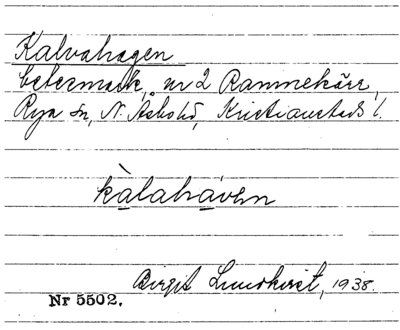 Kalvahagen
betesmark, nr 2 Rammekärr,
Rya sn, N. Åsbohd, Kristianstads l.
kàlahávən
Birgit Lundkvist, 1938.
Nr 5502.